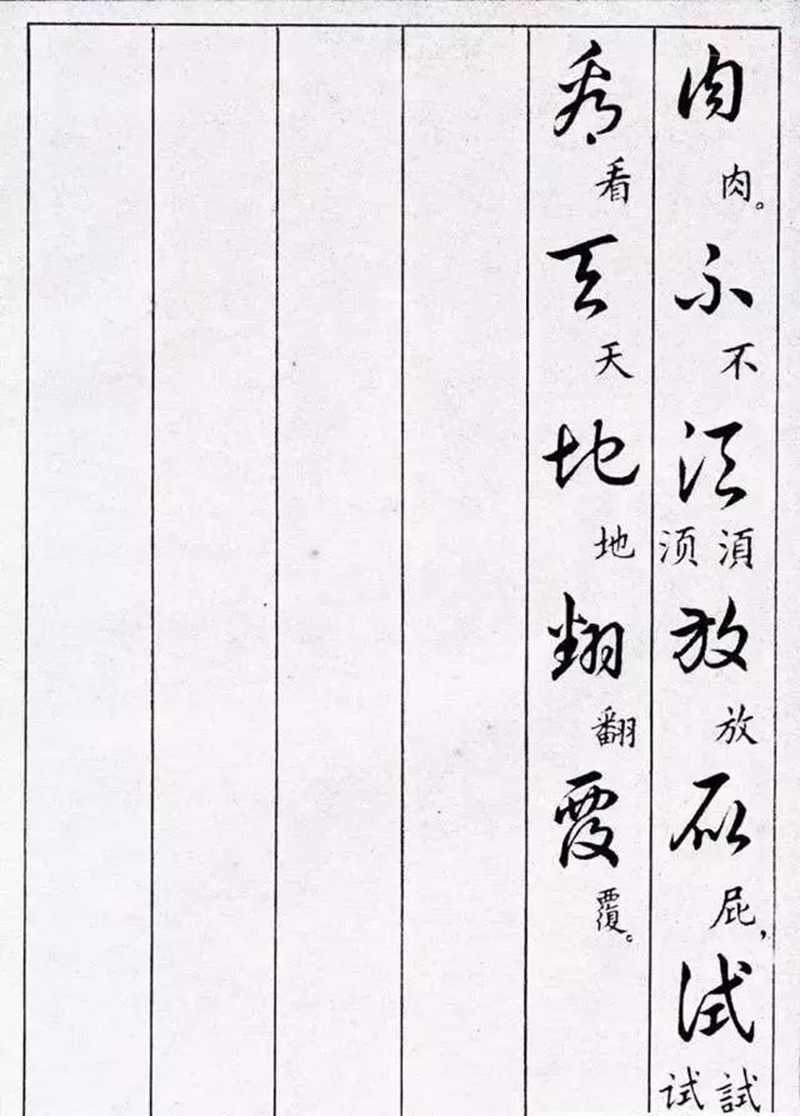 肉肉。不不須须須放放屁屁,試试試
看看天天地地翻翻覆覆。